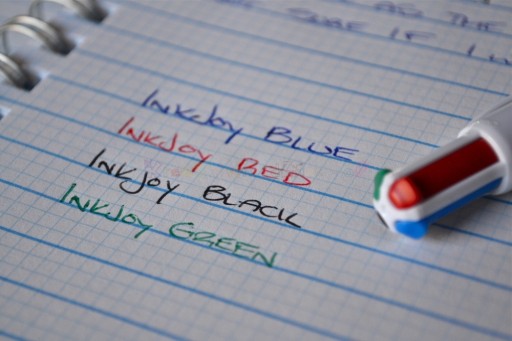 AS THE
SURE IF I
InkJoy Blue
InkJoy Red
InkJoy Black
InkJoy Green